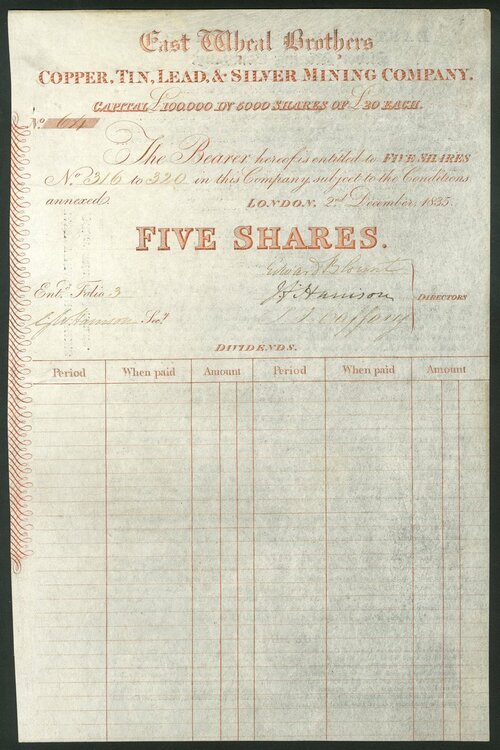 East Wheal Brothers
COPPER, TIN, LEAD, & SILVER MINING COMPANY.
CAPITAL £100,000 IN 5000 SHARES OF £20 EACH.
No. 64
The Bearer hereof is entitled to FIVE SHARES
No. 316 to 320 in this Company, subject to the Conditions
annexed. LONDON, 2nd December, 1835.
FIVE SHARES.
Edward Blount
Entd. Folio 3 J. Harrison DIRECTORS
Secy.
DIVIDENDS.
Period When paid Amount Period When paid Amount